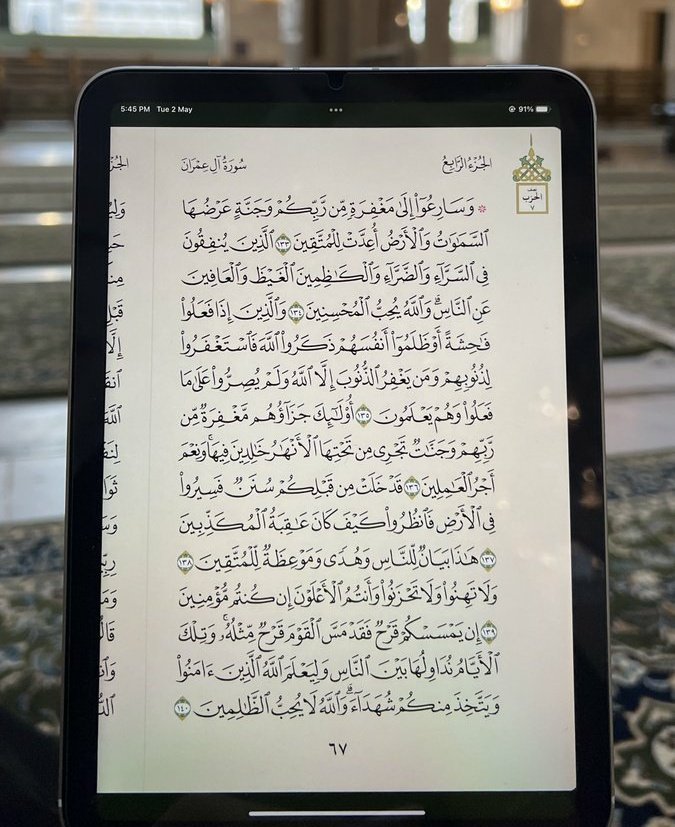 5:45 PM Tue 2 May
91%
الجُزْءُ الرَّابِعُ
سُورَةُ آلِ عِمْرَانَ
نصف
الحزب
٧
۞ وَسَارِعُوٓاْ إِلَىٰ مَغْفِرَةٖ مِّن رَّبِّكُمْ وَجَنَّةٍ عَرْضُهَا
ٱلسَّمَٰوَٰتُ وَٱلْأَرْضُ أُعِدَّتْ لِلْمُتَّقِينَ ١٣٣ ٱلَّذِينَ يُنفِقُونَ
فِي ٱلسَّرَّآءِ وَٱلضَّرَّآءِ وَٱلْكَٰظِمِينَ ٱلْغَيْظَ وَٱلْعَافِينَ
عَنِ ٱلنَّاسِۗ وَٱللَّهُ يُحِبُّ ٱلْمُحْسِنِينَ ١٣٤ وَٱلَّذِينَ إِذَا فَعَلُواْ
فَٰحِشَةً أَوْ ظَلَمُوٓاْ أَنفُسَهُمْ ذَكَرُواْ ٱللَّهَ فَٱسْتَغْفَرُواْ
لِذُنُوبِهِمْ وَمَن يَغْفِرُ ٱلذُّنُوبَ إِلَّا ٱللَّهُ وَلَمْ يُصِرُّواْ عَلَىٰ مَا
فَعَلُواْ وَهُمْ يَعْلَمُونَ ١٣٥ أُوْلَٰٓئِكَ جَزَآؤُهُم مَّغْفِرَةٞ مِّن
رَّبِّهِمْ وَجَنَّٰتٞ تَجْرِي مِن تَحْتِهَا ٱلْأَنْهَٰرُ خَٰلِدِينَ فِيهَاۚ وَنِعْمَ
أَجْرُ ٱلْعَٰمِلِينَ ١٣٦ قَدْ خَلَتْ مِن قَبْلِكُمْ سُنَنٞ فَسِيرُواْ
فِي ٱلْأَرْضِ فَٱنظُرُواْ كَيْفَ كَانَ عَٰقِبَةُ ٱلْمُكَذِّبِينَ
١٣٧ هَٰذَا بَيَانٞ لِّلنَّاسِ وَهُدٗى وَمَوْعِظَةٞ لِّلْمُتَّقِينَ ١٣٨
وَلَا تَهِنُواْ وَلَا تَحْزَنُواْ وَأَنتُمُ ٱلْأَعْلَوْنَ إِن كُنتُم مُّؤْمِنِينَ
١٣٩ إِن يَمْسَسْكُمْ قَرْحٞ فَقَدْ مَسَّ ٱلْقَوْمَ قَرْحٞ مِّثْلُهُۥۚ وَتِلْكَ
ٱلْأَيَّامُ نُدَاوِلُهَا بَيْنَ ٱلنَّاسِ وَلِيَعْلَمَ ٱللَّهُ ٱلَّذِينَ ءَامَنُواْ
وَيَتَّخِذَ مِنكُمْ شُهَدَآءَۗ وَٱللَّهُ لَا يُحِبُّ ٱلظَّٰلِمِينَ ١٤٠
٦٧